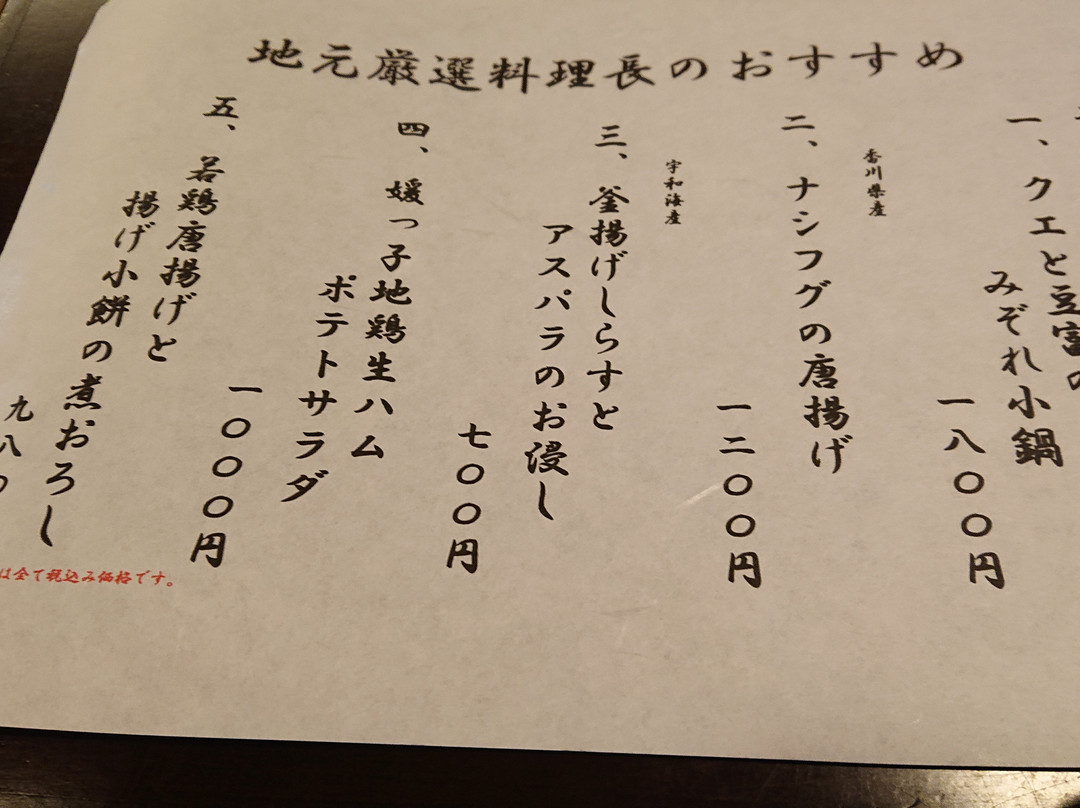 地元厳選料理長のおすすめ
一、クエと豆富の
みぞれ小鍋
一八〇〇円
香川県産
二、ナシフグの唐揚げ
一二〇〇円
宇和海産
三、釜揚げしらすと
アスパラのお浸し
七〇〇円
四、媛っ子地鶏生ハム
ポテトサラダ
一〇〇〇円
五、若鶏唐揚げと
揚げ小餅の煮おろし
九八〇
は全て税込み価格です。